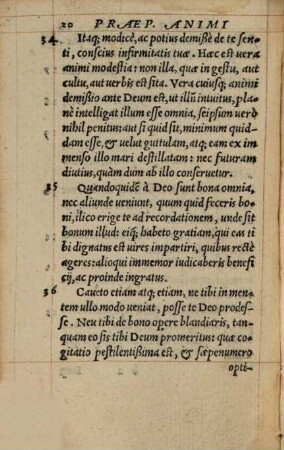 20 PRAEP. ANIMI
34 Itaq; modicè, ac potius demißè de te senti
ti, conscius infirmitatis tuæ. Hæc est vera
animi modestia: non illa, quæ in gestu, aut
cultu, aut verbis est sita. Vera cuiusq; animi
demißio ante Deum est, ut illũ intuitus, pla
nè intelligat illum esse omnia, seipsum verò
nihil penitus: aut si quid sit, minimum quid
dam esse, & velut guttulam, atq; eam ex im
menso illo mari destillatam: nec futuram
diutius, quàm dum ab illo conseruetur.
35 Quandoquidẽ à Deo sunt bona omnia,
nec aliunde ueniunt, quum quid feceris bo
ni, ilico erige te ad recordationem, unde sit
bonum illud: eiq; habeto gratiam, qui eas ti
bi dignatus est uires impartiri, quibus rectè
ageres: alioqui immemor iudicaberis benefi
cij, ac proinde ingratus.
36 Caueto etiam atq; etiam, ne tibi in men
tem ullo modo ueniat, posse te Deo prodes-
se. Neu tibi de bono opere blandiaris, tan-
quam eo sis tibi Deum promeritus: quæ co
gitatio pestilentißima est, & sæpenumero
opti-